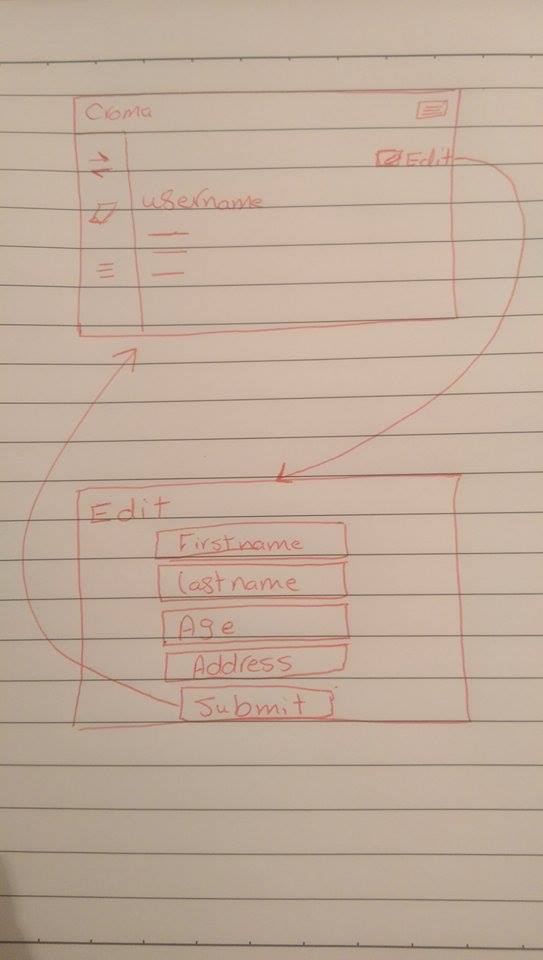 Croma
Edit
username
Edit
Firstname
Lastname
Age
Address
Submit